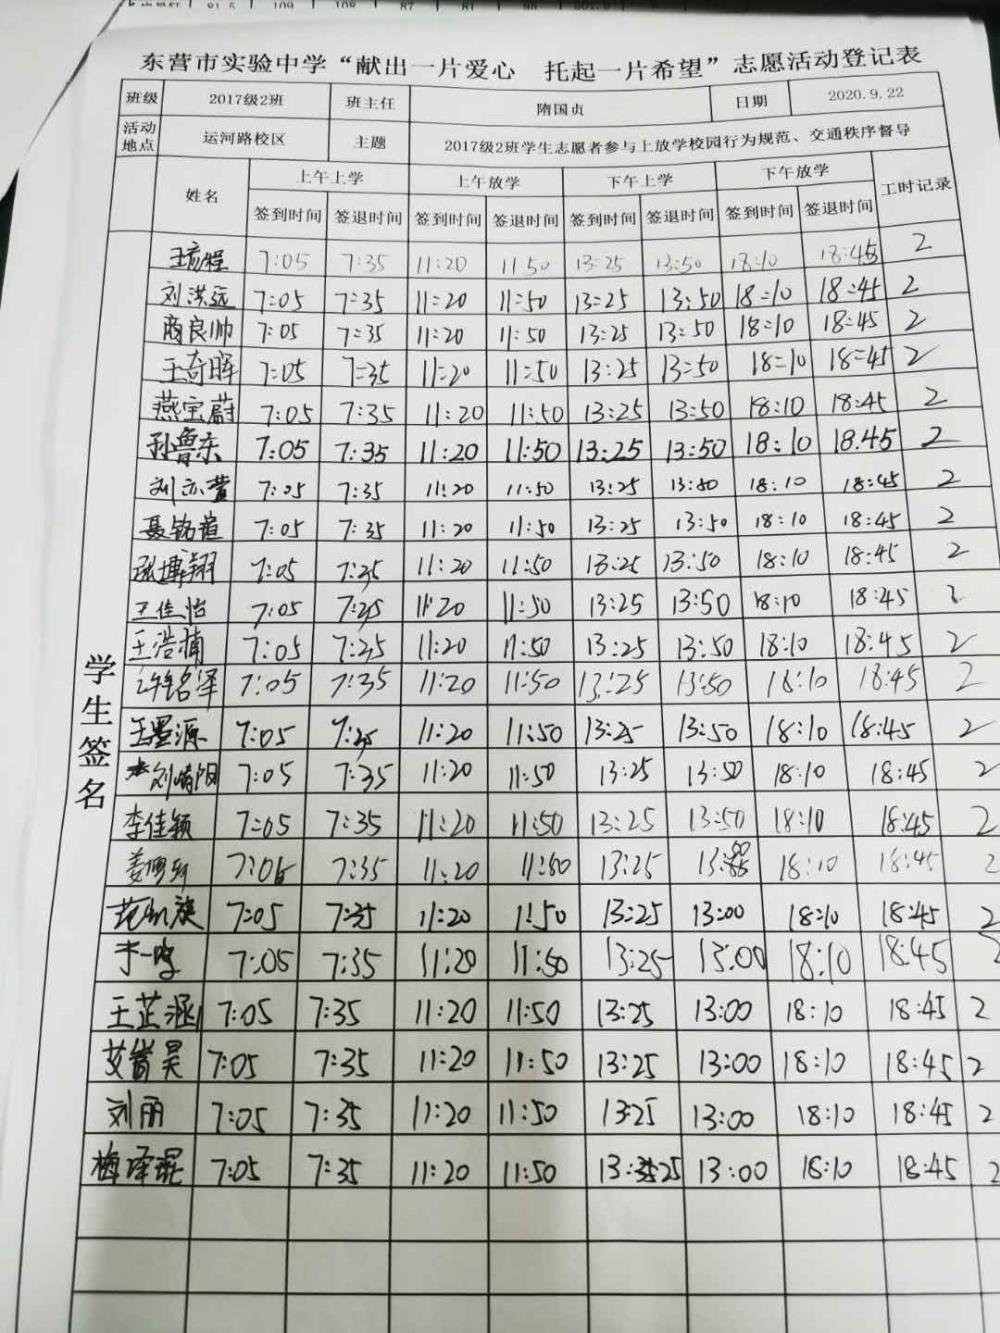 东营市实验中学“献出一片爱心 托起一片希望”志愿活动登记表
班级 2017级2班 班主任 隋国贞 日期 2020.9.22
活动地点 运河路校区 主题 2017级2班学生志愿者参与上放学校园行为规范、交通秩序督导
姓名 上午上学 上午放学 下午上学 下午放学 工时记录
签到时间 签退时间 签到时间 签退时间 签到时间 签退时间 签到时间 签退时间
学生签名
7:05 7:35 11:20 11:50 13:25 13:50 18:10 18:45 2
刘洪远 7:05 7:35 11:20 11:50 13:25 13:50 18:10 18:45 2
商良帅 7:05 7:35 11:20 11:50 13:25 13:50 18:10 18:45 2
王奇晖 7:05 7:35 11:20 11:50 13:25 13:50 18:10 18:45 2
燕宝蔚 7:05 7:35 11:20 11:50 13:25 13:50 18:10 18:45 2
孙鲁东 7:05 7:35 11:20 11:50 13:25 13:50 18:10 18.45 2
刘亦萱 7:05 7:35 11:20 11:50 13:25 13:50 18:10 18:45 2
7:05 7:35 11:20 11:50 13:25 13:50 18:10 18:45 2
张博翔 7:05 7:35 11:20 11:50 13:25 13:50 18:10 18:45 2
王佳怡 7:05 7:35 11:20 11:50 13:25 13:50 18:10 18:45 2
王浩楠 7:05 7:35 11:20 11:50 13:25 13:50 18:10 18:45 2
许铭泽 7:05 7:35 11:20 11:50 13:25 13:50 18:10 18:45 2
王墨源 7:05 7:35 11:20 11:50 13:25 13:50 18:10 18:45 2
刘晴阳 7:05 7:35 11:20 11:50 13:25 13:50 18:10 18:45 2
李佳颖 7:05 7:35 11:20 11:50 13:25 13:50 18:10 18:45 2
7:05 7:35 11:20 11:50 13:25 18:10 18:45 2
范凯旋 7:05 7:35 11:20 11:50 13:25 13:00 18:10 18:45 2
于一鸣 7:05 7:35 11:20 11:50 13:25 13:00 18:10 18:45 2
王芷涵 7:05 7:35 11:20 11:50 13:25 13:00 18:10 18:45 2
昊 7:05 7:35 11:20 11:50 13:25 13:00 18:10 18:45 2
刘丽 7:05 7:35 11:20 11:50 13:25 13:00 18:10 18:45 2
梅泽琨 7:05 7:35 11:20 11:50 13:25 13:00 18:10 18:45 2